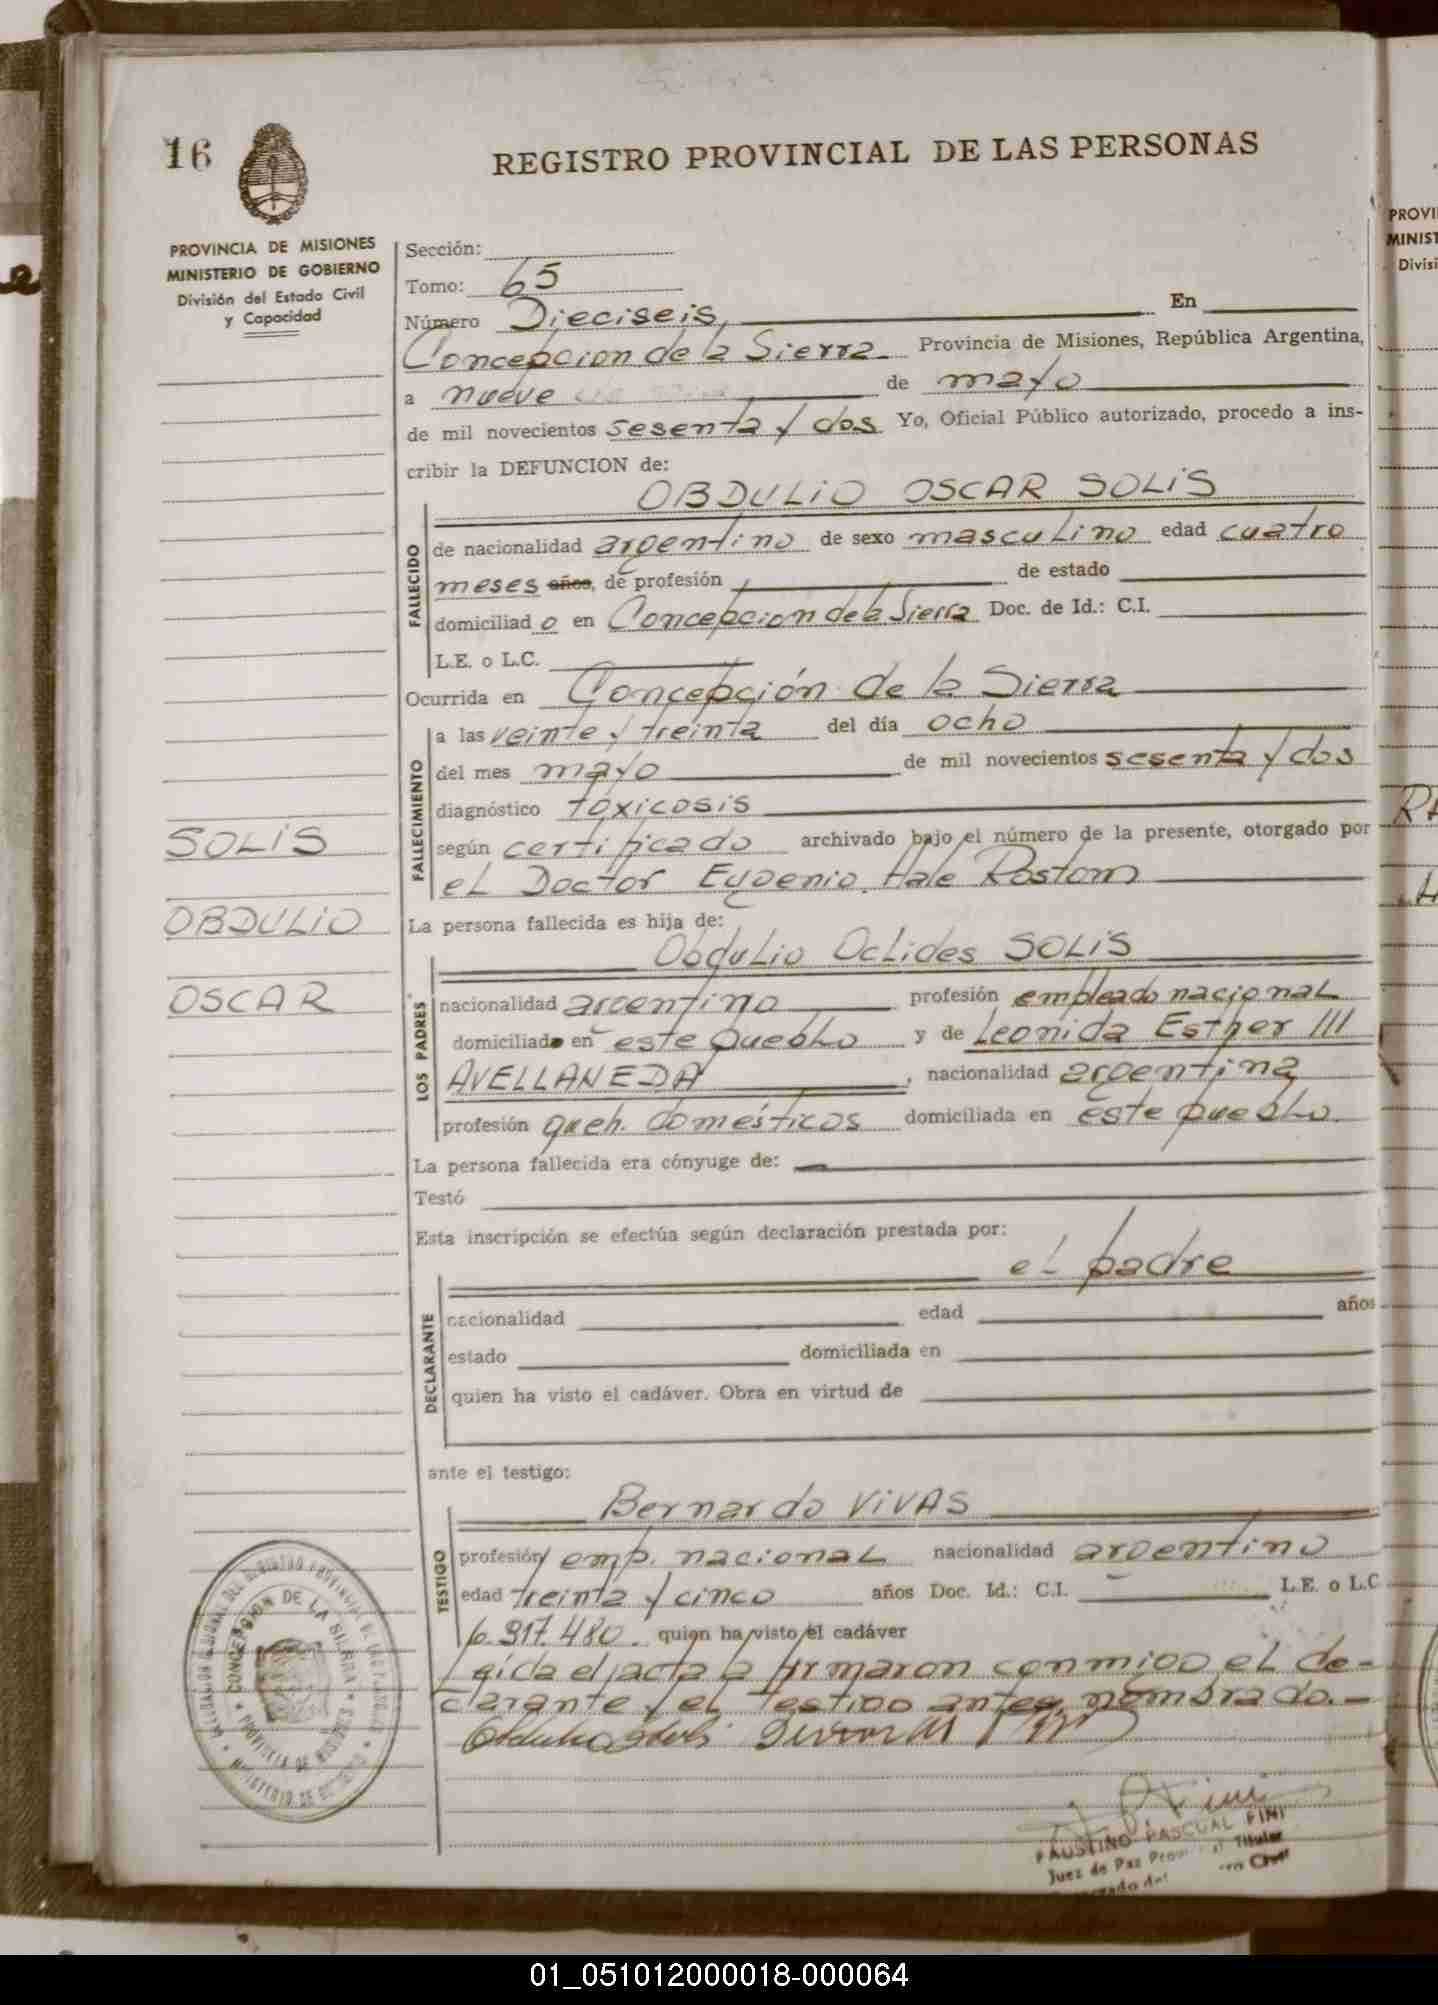 16
REGISTRO PROVINCIAL DE LAS PERSONAS
PROVINCIA DE MISIONES
MINISTERIO DE GOBIERNO
División del Estado Civil
y Capacidad
Sección:
Tomo: 65
Número Dieciseis, En
Concepcion de la Sierra Provincia de Misiones, República Argentina,
a nueve de mayo
de mil novecientos sesenta y dos Yo, Oficial Público autorizado, procedo a ins-
cribir la DEFUNCION de:
OBDULIO OSCAR SOLIS
FALLECIDO
de nacionalidad argentino de sexo masculino edad cuatro
meses años, de profesión de estado
domiciliado en Concepcion de la Sierra Doc. de Id.: C.I.
L.E. o L.C.
Ocurrida en Concepción de la Sierra
FALLECIMIENTO
a las veinte y treinta del día ocho
del mes mayo de mil novecientos sesenta y dos
diagnóstico toxicosis
según certificado archivado bajo el número de la presente, otorgado por
el Doctor Eugenio Hale Rostom
SOLIS
OBDULIO
OSCAR
La persona fallecida es hija de:
Obdulio Oclides SOLIS
LOS PADRES
nacionalidad argentino profesión empleado nacional
domiciliado en este pueblo y de Leonida Esther
AVELLANEDA, nacionalidad argentina
profesión queh. domésticos domiciliada en este pueblo.
La persona fallecida era cónyuge de:
Testó
Esta inscripción se efectúa según declaración prestada por:
el padre
DECLARANTE
nacionalidad edad años
estado domiciliada en
quien ha visto el cadáver. Obra en virtud de
ante el testigo:
Bernardo VIVAS
TESTIGO
profesión emp. nacional nacionalidad argentino
edad treinta y cinco años Doc. Id.: C.I. L.E. o L.C
317.480. quien ha visto el cadáver
Leída el acta la firmaron conmigo el de-
clarante y el testigo antes nombrado.-
CONCEPCION DE LA SIERRA
PROVINCIA DE MISIONES
MINISTERIO DE GOBIERNO
FAUSTINO PASCUAL FINI
Juez de Paz Titular
PROVI
MINIST
Divisi
01_051012000018-000064